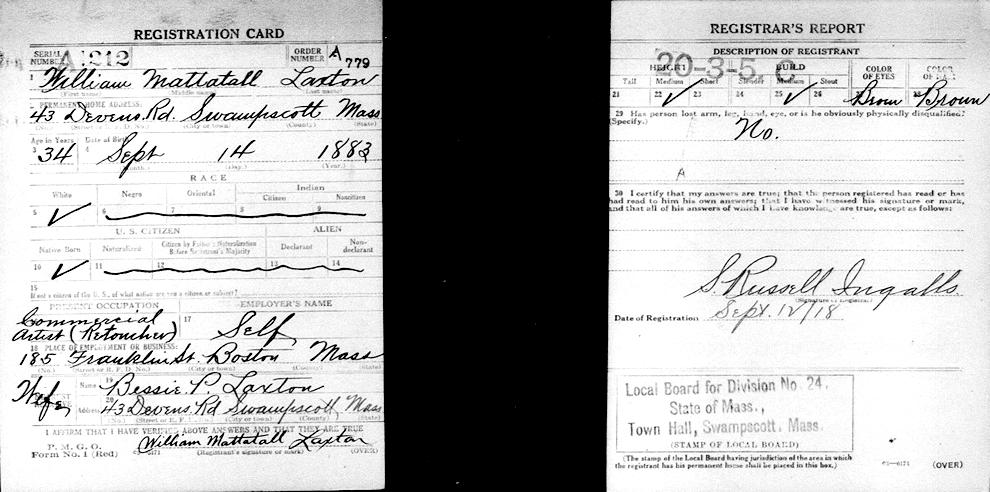 REGISTRATION CARD
SERIAL NUMBER A 1212 ORDER NUMBER A 779
1 William Mattatall Laxton
(First name) (Middle name) (Last name)
2 PERMANENT HOME ADDRESS:
43 Devens Rd. Swampscott Mass
(No.) (Street or R. F. D. No.) (City or town) (County) (State)
Age in Years Date of Birth
3 34 4 Sept 14 1883
(Month.) (Day.) (Year.)
RACE
White Negro Oriental Indian
Citizen Noncitizen
5 ✓ 6 7 8 9
U. S. CITIZEN ALIEN
Native Born Naturalized Citizen by Father's Naturalization Before Registrant's Majority Declarant Non-declarant
10 ✓ 11 12 13 14
15
If not a citizen of the U. S., of what nation are you a citizen or subject?
PRESENT OCCUPATION EMPLOYER'S NAME
Commercial
Artist (Retoucher) 17 Self
18 PLACE OF EMPLOYMENT OR BUSINESS:
185 Franklin St. Boston Mass
(No.) (Street or R. F. D. No.) (City or town) (County) (State)
Wife Name 19 Bessie P. Laxton
Address 20 43 Devens Rd Swampscott Mass
(No.) (Street or R. F. D. No.) (City or town) (County) (State)
I AFFIRM THAT I HAVE VERIFIED ABOVE ANSWERS AND THAT THEY ARE TRUE
P. M. G. O.
Form No. 1 (Red) William Mattatall Laxton
(Registrant's signature or mark) (OVER)
REGISTRAR'S REPORT
DESCRIPTION OF REGISTRANT
20-3-5 C
HEIGHT BUILD COLOR OF EYES COLOR OF HAIR
Tall Medium Short Slender Medium Stout
21 22 ✓ 23 24 25 ✓ 26 27 Brown 28 Brown
29 Has person lost arm, leg, hand, eye, or is he obviously physically disqualified?
(Specify.) No.
A
30 I certify that my answers are true; that the person registered has read or has
had read to him his own answers; that I have witnessed his signature or mark,
and that all of his answers of which I have knowledge are true, except as follows:
S. Russell Ingalls
(Signature of Registrar)
Date of Registration Sept. 12/18
Local Board for Division No. 24.
State of Mass.,
Town Hall, Swampscott, Mass.
(STAMP OF LOCAL BOARD)
(The stamp of the Local Board having jurisdiction of the area in which
the registrant has his permanent home shall be placed in this box.)
03-6171 (OVER)